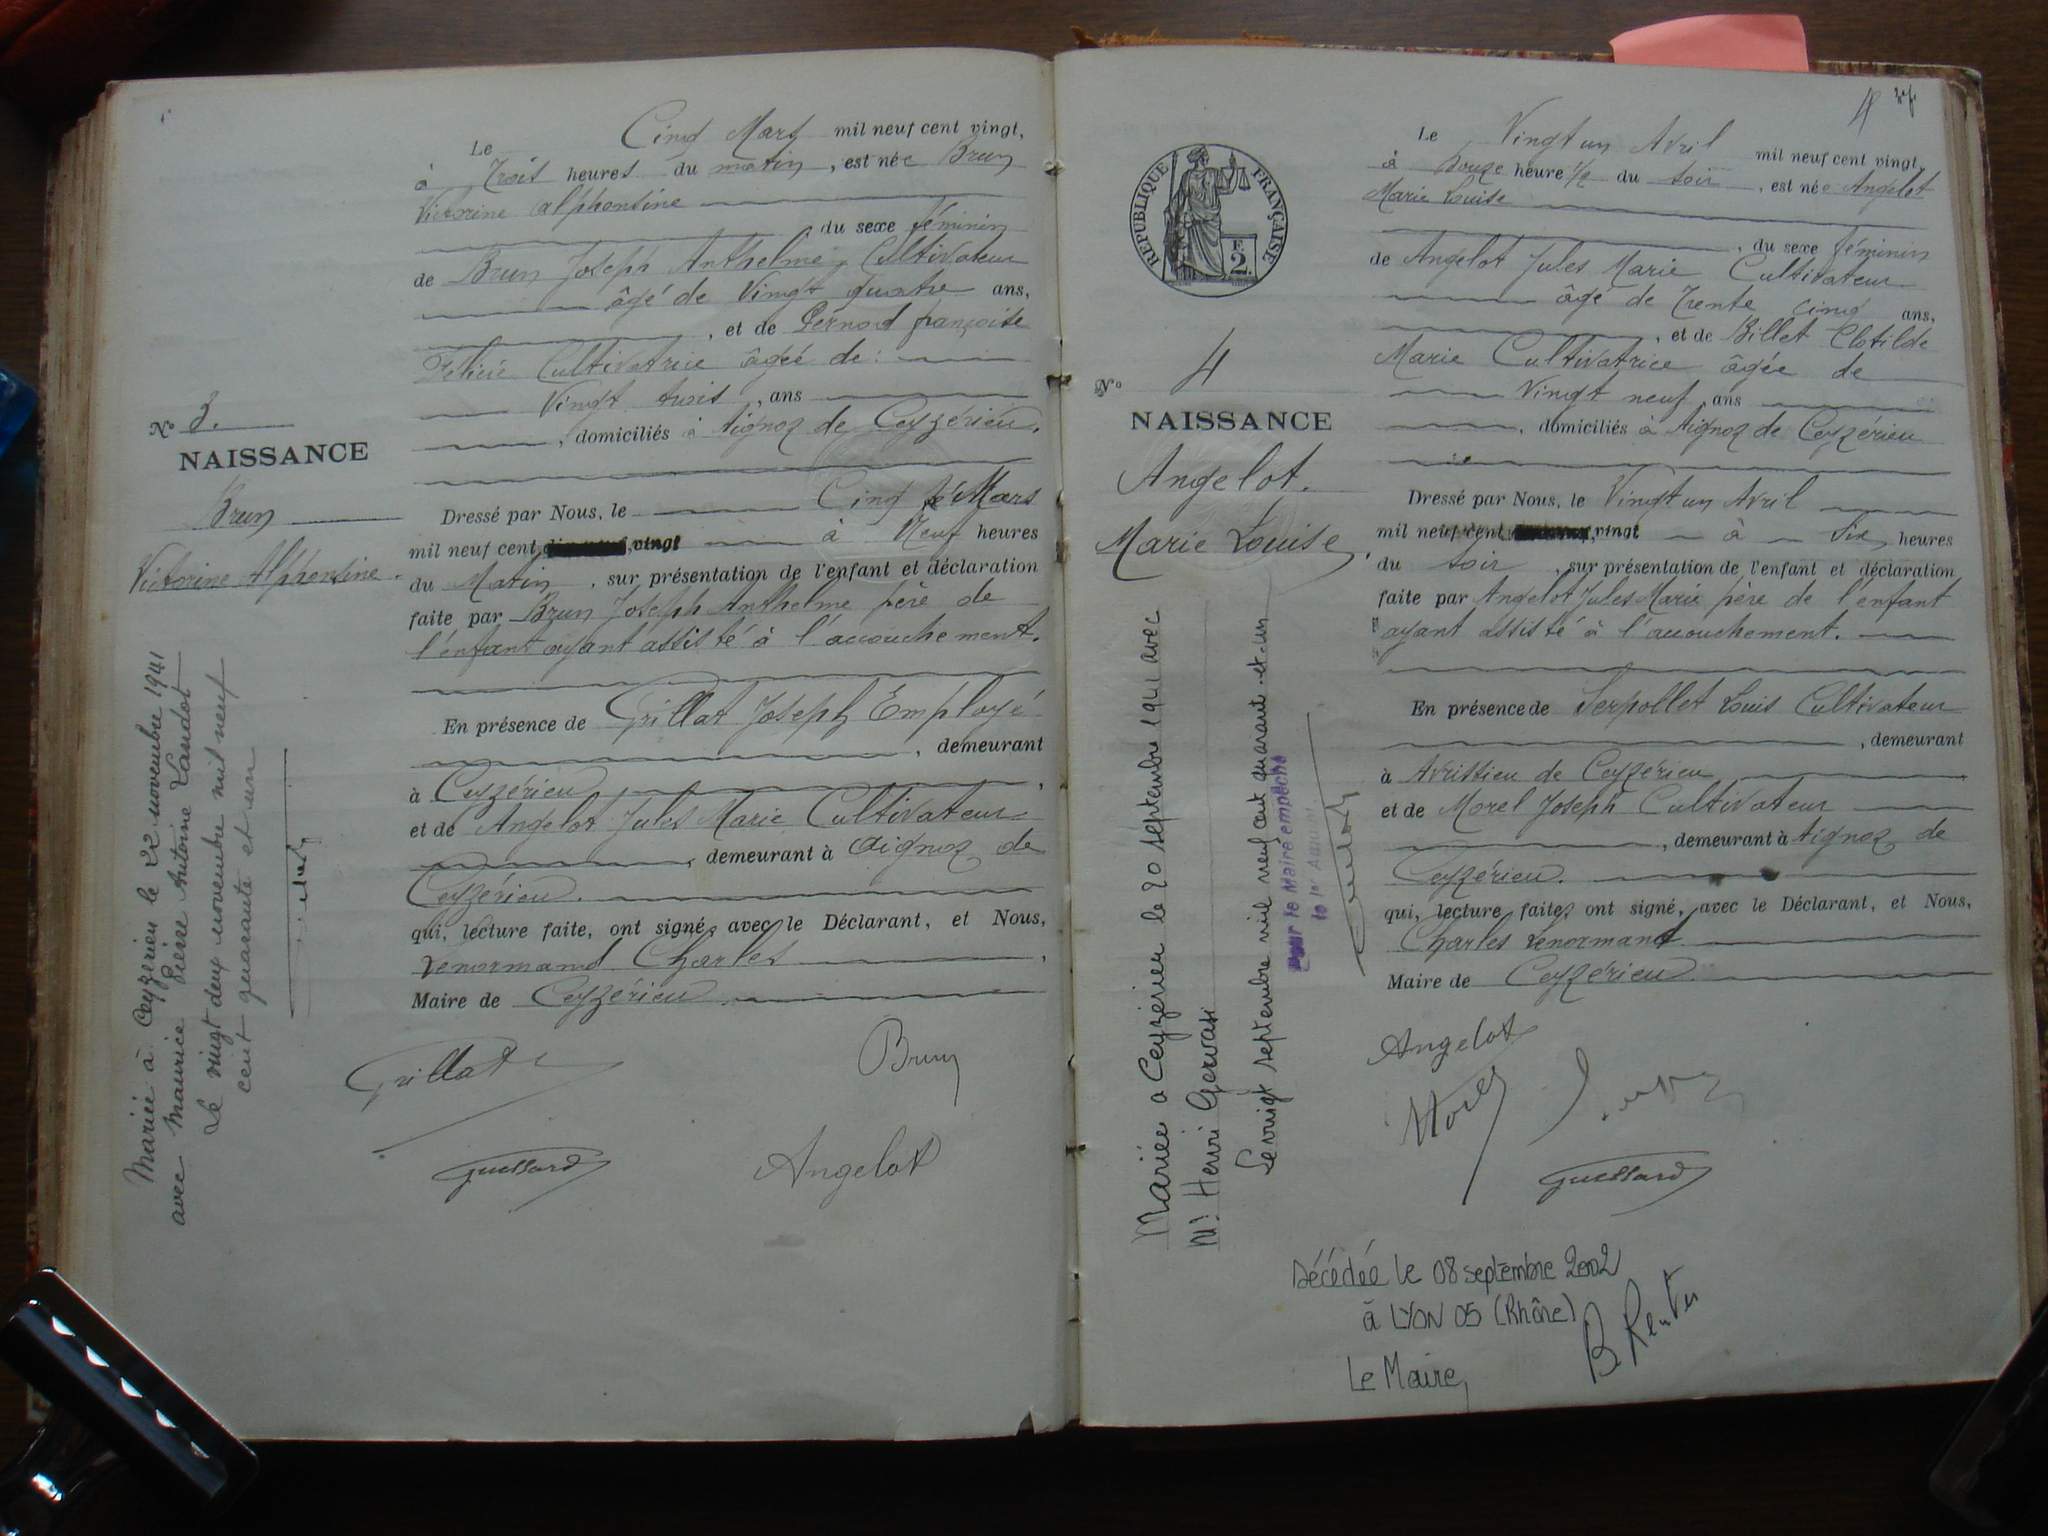 Le Cinq Mars mil neuf cent vingt,
à Trois heures du matin, est née Brun
Victorine Alphonsine
du sexe féminin
de Brun Joseph Anthelme, Cultivateur
âgé de Vingt quatre ans,
, et de Pernod françoise
Félicie Cultivatrice âgée de :
Vingt trois , ans
, domiciliés à Aignoz de Ceyzérieu.
Dressé par Nous, le Cinq Mars
mil neuf cent vingt à Neuf heures
du Matin, sur présentation de l'enfant et déclaration
faite par Brun Joseph Anthelme père de
l'enfant ayant assisté à l'accouchement.
En présence de Grillat Joseph Employé
, demeurant
à Ceyzérieu,
et de Angelot Jules Marie Cultivateur
, demeurant à Aignoz de
Ceyzérieu.
qui, lecture faite, ont signé avec le Déclarant, et Nous,
Lenormand Charles,
Maire de Ceyzérieu.
Grillat
Brun
Guessard
Angelot
No 3.
NAISSANCE
Brun
Victorine Alphonsine.
Mariée à Ceyzérieu le 22 novembre 1941
avec Maurice Pierre Antoine Landot
Le vingt deux novembre mil neuf
cent quarante et un
4
Le Vingt un Avril mil neuf cent vingt,
à Douze heure 1/2 du soir, est née Angelot
Marie Louise
, du sexe féminin
de Angelot Jules Marie Cultivateur
âgé de Trente cinq ans,
, et de Billet Clotilde
Marie Cultivatrice âgée de
Vingt neuf, ans
, domiciliés à Aignoz de Ceyzérieu
Dressé par Nous, le Vingt un Avril
mil neuf cent vingt à Six heures
du soir, sur présentation de l'enfant et déclaration
faite par Angelot Jules Marie père de l'enfant
ayant assisté à l'accouchement.
En présence de Serpollet Louis Cultivateur
, demeurant
à Avrissieu de Ceyzérieu
et de Morel Joseph Cultivateur
, demeurant à Aignoz de
Ceyzérieu.
qui, lecture faite, ont signé, avec le Déclarant, et Nous,
Charles Lenormand
Maire de Ceyzérieu
Angelot
Morel
Guessard
RÉPUBLIQUE FRANÇAISE
F.
2.
No 4
NAISSANCE
Angelot.
Marie Louise
Mariée à Ceyzérieu le 20 septembre 1941 avec
Mr Henri Gervasi
Le vingt septembre mil neuf cent quarant et un
Pour le Maire empêché
le 1er Adjoint
Décédée le 08 septembre 2002
à LYON 05 (Rhône)
Le Maire,